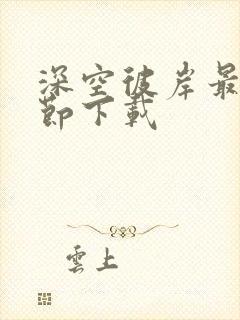 深空彼岸最
節下載
雲上